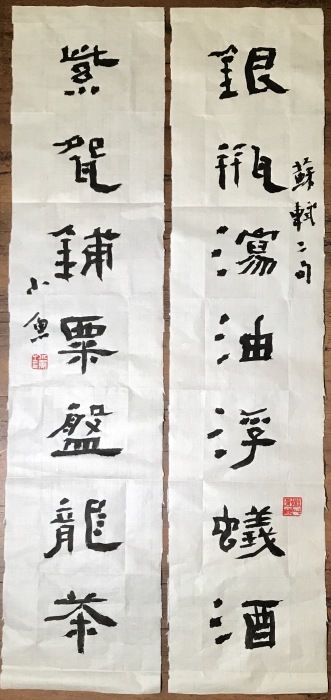 銀瓶瀉油浮蟻酒
蘇軾二句
紫㼝鋪粟盤龍茶
小魚